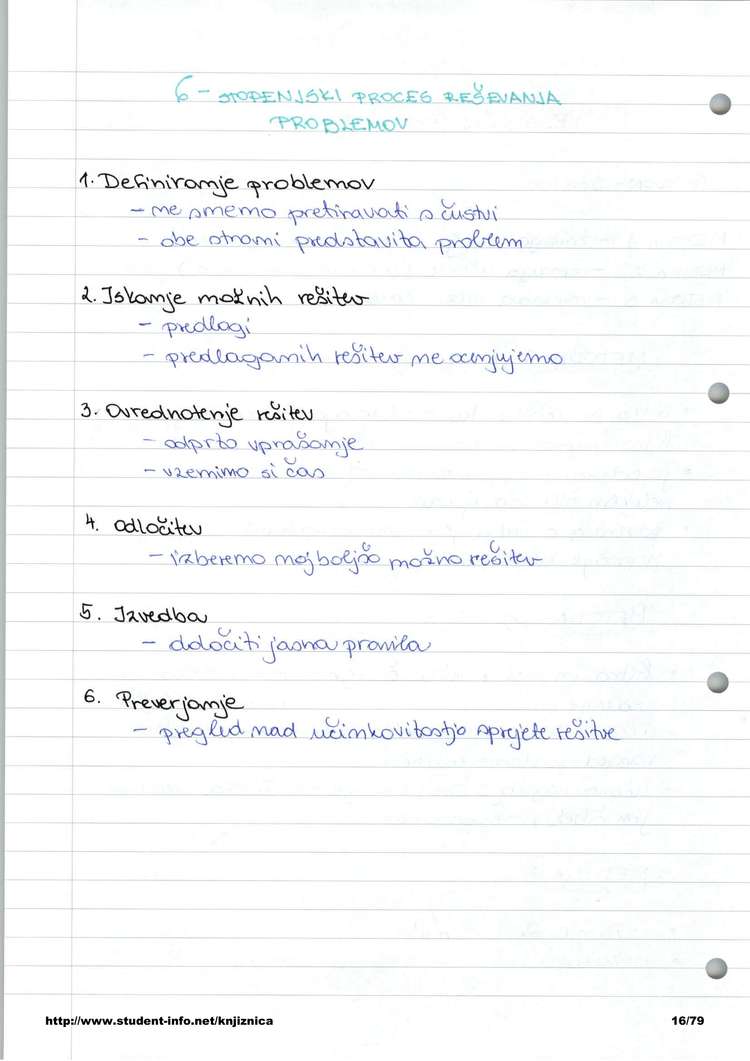 6 - STOPENJSKI PROCES REŠEVANJA
PROBLEMOV
1. Definiranje problemov
- ne smemo pretiravati s čustvi
- obe strani predstavita problem
2. Iskanje možnih rešitev
- predlogi
- predlaganih rešitev ne ocenjujemo
3. Ovrednotenje rešitev
- odprto vprašanje
- vzemimo si čas
4. odločitev
- izberemo najboljšo možno rešitev
5. Izvedba
- določiti jasna pravila
6. Preverjanje
- pregled nad učinkovitostjo sprejete rešitve
http://www.student-info.net/knjiznica 16/79